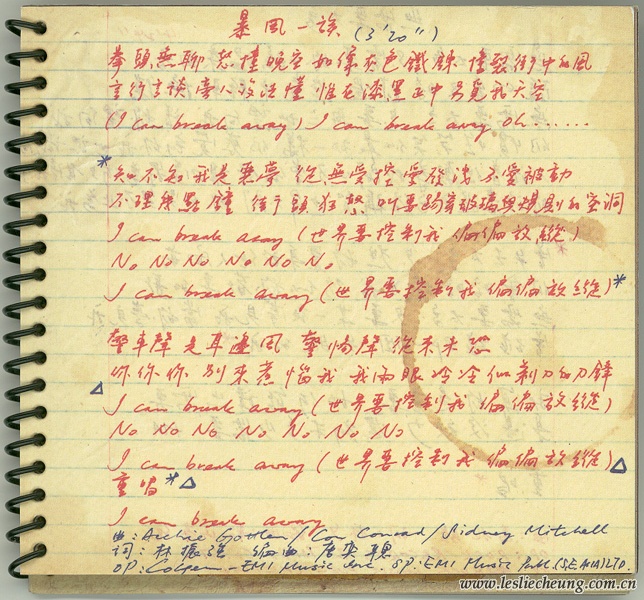 暴風一族 (3'20")
拳頭無聊 怒撞晚空 如像灰色鐵鍊 撞裂街中的風
言行言談 旁人沒法懂 惟在漆黑正中另覓我天空
(I can break away) I can break away oh......
*知不知我是惡夢 從無受控 愛發洩 不愛被動
不理幾點鐘 街頭狂怒 叫要踢穿玻璃與規則的空洞
I can break away (世界要控制我 偏偏放縱)
No No No No No No
I can break away (世界要控制我 偏偏放縱)*
警車聲是耳邊風 警惕聲從來未恐
你你 別來惹惱我 我兩眼冷冷似剃刀的刀鋒
△ I can break away (世界要控制我 偏偏放縱)
No No No No No No No
I can break away (世界要控制我 偏偏放縱)△
重唱*△
I can break away
曲: Archie Gottler / Con Conrad / Sidney Mitchell
詞: 林振強 編曲: 唐奕聰
OP: Colgem-EMI Music Inc. SP: EMI Music Publ. (S.E. ASIA) LTD.
www.lesliecheung.com.cn